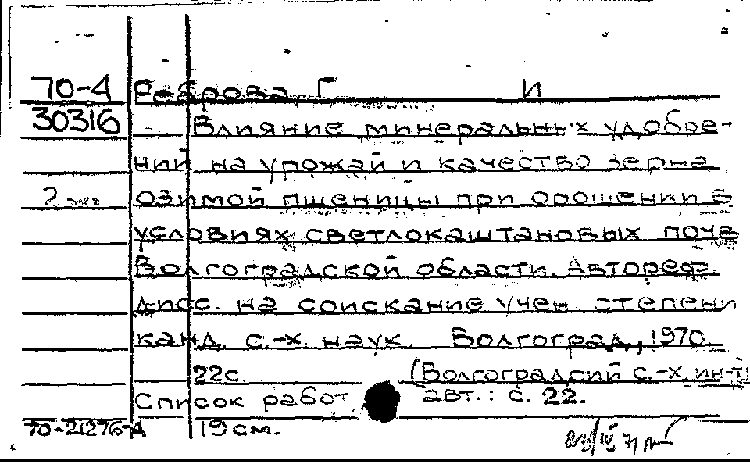 70-4 Реброва Г И
30316 Влияние минеральных удобре-
ний на урожай и качество зерна
2 экз озимой пшеницы при орошении в
условиях светлокаштановых почв
Волгоградской области. Автореф.
дисс. на соискание учен. степени
канд. с.-х. наук. Волгоград, 1970.
22с. (Волгоградсий с.-х. ин-т)
Список работ авт.: с. 22.
70-21276-А 19 см.